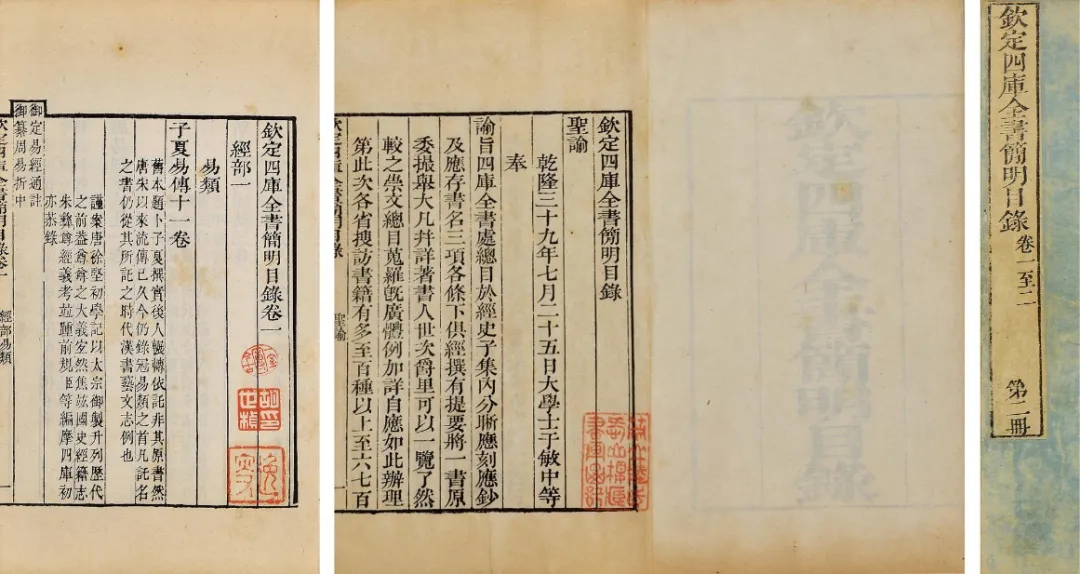 欽定四庫全書簡明目錄 卷一至二 第二冊
欽定四庫全書簡明目錄
聖諭
乾隆三十九年七月二十五日大學士于敏中等
奉
諭旨四庫全書處總目於經史子集內分晰應刻應鈔
及應存書名三項各條下俱經撰有提要將一書原
委撮舉大凡并詳著書人世次爵里可以一覽了然
較之崇文總目蒐羅既廣體例加詳自應如此辦理
第此次各省搜訪書籍有多至百種以上至六七百
欽定四庫全書簡明目錄 聖諭
欽定四庫全書簡明目錄卷一
經部一
易類
子夏易傳十一卷
舊本題卜子夏撰實後人輾轉依託非其原書然
唐宋以來流傳已久今仍錄冠易類之首凡託名
之書仍從其所託之時代漢書藝文志例也
謹案唐徐堅初學記以太宗御製升列歷代
之前蓋尊尊之大義宜然焦竑國史經籍志
朱彝尊經義考竝踵前規臣等編摩四庫初
亦恭錄
御定易經通註
御纂周易折中
欽定四庫全書簡明目錄卷一 經部易類 一